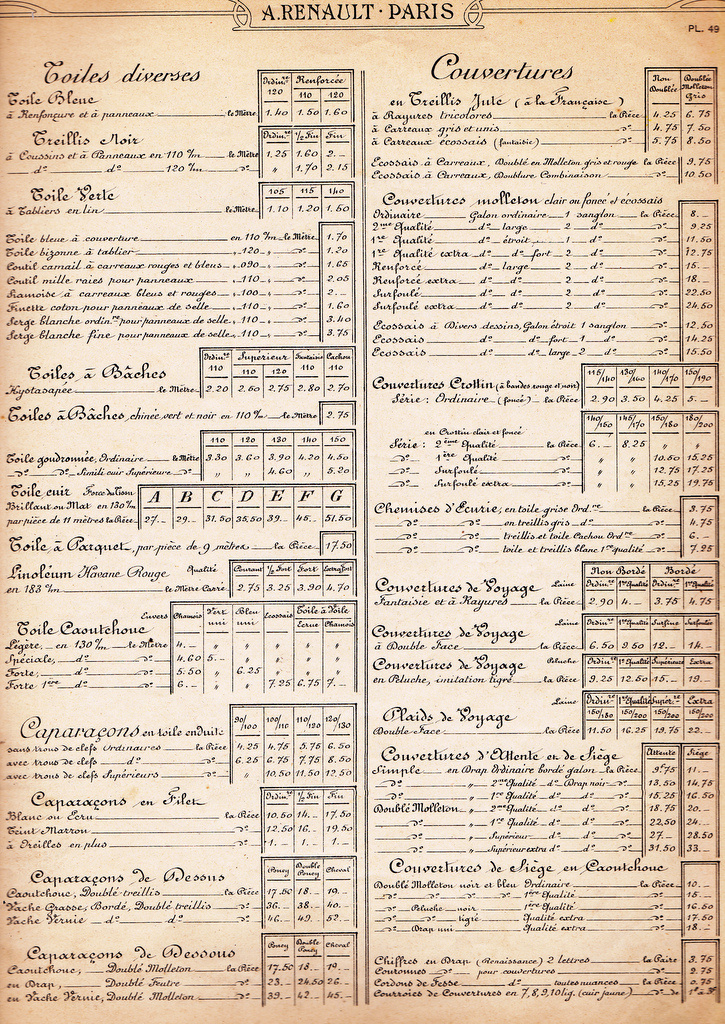 A. RENAULT · PARIS
PL. 49
Toiles diverses
Ordin.re Renforcée
120 110 120
Toile Bleue
à Renfonçure et à panneaux le Mètre 1.40 1.50 1.60
Treillis Noir
Ordin.re ½ Fin Fin
à Coussins et à Panneaux en 110 c/m le Mètre 1.25 1.60 2._
_ d°_ _ d°_ 120 c/m d° " 1.70 2.15
Toile Verte
105 115 140
à Tabliers en lin le Mètre 1.10 1.20 1.50
Toile bleue à couverture en 110 c/m le Mètre 1.70
Toile bizonne à tablier " 120 " d° 1.20
Coutil camail à carreaux rouges et bleus " 090 " d° 1.65
Coutil mille raies pour panneaux " 110 " d° 2.05
Siamoise à carreaux bleus et rouges " 100 " d° 2._
Finette coton pour panneaux de selle " 110 " d° 1.60
Serge blanche ordin.re pour panneaux de selle " 110 " d° 3.40
Serge blanche fine pour panneaux de selle " 110 " d° 3.75
Toiles à Bâches
Ordin.re Superieur Fantaisie Cachou
110 110 120 110 110
Hystasapée le Mètre 2.20 2.50 2.75 2.80 2.70
Toiles à Bâches, chinée vert et noir en 110 c/m le Mètre 2.75
110 120 130 140 150
Toile goudronnée, Ordinaire le Mètre 3.30 3.60 3.90 4.20 4.50
_ d°_ _ d°_ Simili cuir Supérieure d° " " 4.60 " 5.20
Toile cuir Force du Tissu A B C D E F G
Brillant ou Mat en 130 c/m
par pièce de 11 mètres la Pièce 27._ 29._ 31.50 35.50 39._ 45._ 51.50
Toile à Parquet, par pièce de 9 mètres la Pièce 17.50
Linoléum Havane Rouge Qualité Courant ½ Fort Fort Extra fort
en 183 c/m le Mètre Carré 2.75 3.25 3.90 4.70
Toile Caoutchouc
Envers Chamois Vert uni Bleu uni Ecossais Toile à Voile Ecrue Chamois
Légère, en 130 c/m le Mètre 4._ " " " " "
Spéciale, d° d° 4.60 5._ " " " "
Forte, d° d° 5.50 " 6.25 " " "
Forte 1ère d° d° 6._ " " 7.25 6.75 7._
Caparaçons en toile enduite
90/100 100/110 110/120 120/130
sans trous de clefs Ordinaires la Pièce 4.25 4.75 5.75 6.50
avec trous de clefs d° d° 6.25 6.75 7.75 8.50
avec trous de clefs Supérieurs d° " 10.50 11.50 12.50
Caparaçons en Filet
Ordin.re ½ Fin Fin
Blanc ou Ecru la Pièce 10.50 14._ 17.50
Teint Marron " 12.50 16._ 19.50
à Oreilles en plus " 1._ 1._ 1._
Caparaçons de Dessus
Poney Double Poney Cheval
Caoutchouc, Doublé treillis la Pièce 17.50 18._ 19._
Vache Grasse, Bordé, Doublé treillis d° 36._ 38._ 40._
Vache Vernie d° d° d° 46._ 49._ 52._
Caparaçons de Dessous
Poney Double Poney Cheval
Caoutchouc, Doublé Molleton la Pièce 17.50 18._ 19._
en Drap, Doublé Feutre d° 23._ 24.50 26._
en Vache Vernie, Doublé Molleton d° 39._ 42._ 45._
Couvertures
Non Doublée Doublée Molleton Gris
en Treillis Jute (à la Française)
à Rayures tricolores la Pièce 4.25 6.75
à Carreaux gris et unis d° 4.75 7.50
à Carreaux écossais (fantaisie) d° 5.75 8.50
Ecossais à Carreaux, Doublé en Molleton gris et rouge la Pièce 9.75
Ecossais à Carreaux, Doublure Combinaison d° 10.50
Couvertures molleton clair ou foncé et écossais
Ordinaire Galon ordinaire 1 sanglon la Pièce 8._
2ème Qualité d° large 2 d° d° 9.25
1re Qualité d° étroit 1 d° d° 11.50
1re Qualité extra d° d° fort 2 d° d° 12.75
Renforcé d° large 2 d° d° 15._
Renforcé extra d° d° 2 d° d° 18._
Surfoulé d° d° 2 d° d° 22.50
Surfoulé extra d° d° 2 d° d° 24.50
Ecossais à Divers dessins, Galon étroit 1 sanglon d° 12.50
Ecossais d° d° fort 1 d° d° 14.25
Ecossais d° d° large 2 d° d° 15.50
115/140 130/160 140/170 150/190
Couvertures Crottin (à bandes rouge et noir)
Série: Ordinaire (foncé) la Pièce 2.90 3.50 4.25 5._
140/150 145/170 150/180 180/200
en Crottin clair et foncé
Série: 2ème Qualité la Pièce 6._ 8.25 " "
" 1ère Qualité d° " " 10.50 15.25
" Surfoulé d° " " 12.75 17.25
" Surfoulé extra d° " " 15.25 19.75
Chemises d'Ecurie, en toile grise Ord.re la Pièce 3.75
d° d° en treillis gris d° d° 4.75
d° d° treillis et toile Cachou Ord.re d° 6._
d° d° toile et treillis blanc 1re qualité d° 7.25
Couvertures de Voyage Laine
Non Bordé Bordé
Ordin.re 1re Qualité Ordin.re 1re Qualité
Fantaisie et à Rayures la Pièce 2.90 4._ 3.75 4.75
Couvertures de Voyage Laine Ordin.re 1re Qualité Surfine Surfoulée
à Double Face la Pièce 6.50 9.50 12._ 14._
Couvertures de Voyage Peluche Ordin.re 1re Qualité Supérieure Extra
en Peluche, imitation tigré la Pièce 9.25 12.50 15._ 19._
Plaids de Voyage Laine Ordin.re 1re Qualité Super.re Extra
150/180 150/200 150/200 150/200
Double Face la Pièce 11.50 16.25 19.75 22._
Couvertures d'Attente et de Siège Attente Siège
Simple en Drap Ordinaire bordé galon la Pièce 9.75 11._
" 2ème Qualité d° Drap noir d° 13.50 14.75
" 1re Qualité d° d° d° 15.25 16.50
Doublé Molleton " 2ème Qualité d° d° d° 18.75 20._
" 1re Qualité d° d° d° 22.50 24._
" Supérieur d° d° d° 27._ 28.50
" Supérieur extra d° d° d° 31.50 33._
Couvertures de Siège en Caoutchouc
Doublé Molleton noir et bleu Ordinaire la Pièce 10._
d° d° d° d° 1ère Qualité d° 15._
d° Peluche noir 1ère Qualité d° 16.50
d° d° tigré Qualité extra d° 17.50
d° Drap uni Qualité extra d° 18._
Chiffres en Drap (Renaissance) 2 lettres la Paire 3.75
Couronnes d° pour couvertures d° 2.75
Cordons de Fesse d° toutes nuances la Pièce 0.75
Courroies de Couvertures en 7, 8, 9, 10 lig. (cuir jaune) d° de 1._ à 3._